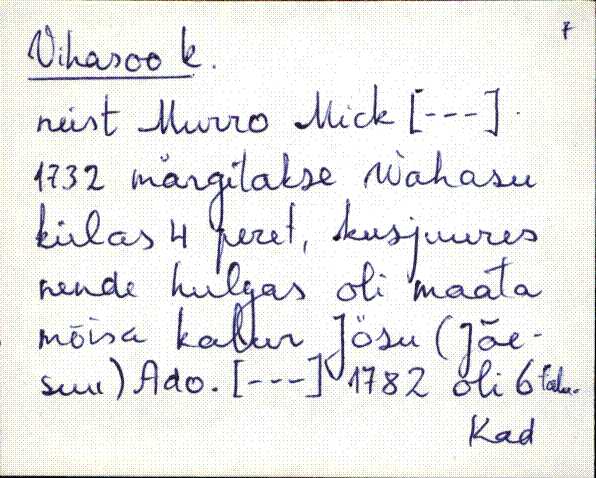 7
Vihasoo k.
neist Murro Mick [---].
1732 märgitakse Wahasu
külas 4 peret, kusjuures
nende hulgas oli maata
mõisa kalur Jösu (Jõe-
suu) Ado. [---] 1782 oli 6 talu.
Kad